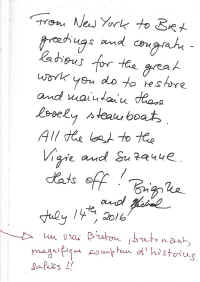 From New York to Bret
greetings and congratu-
lations for the great
work you do to restore
and maintain these
lovely steamboats.
All the best to the
Vigie and Suzanne.
Hats off! Brigitte
and
July 14th, 2016
un vrai Breton,
magnifique d'histoires
salées!!